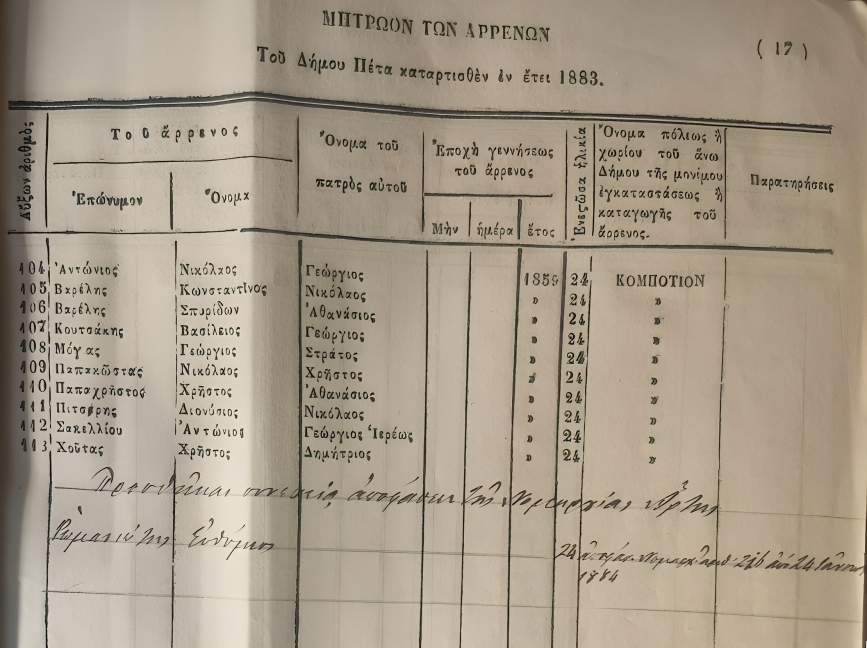 ΜΗΤΡΩΟΝ ΤΩΝ ΑΡΡΕΝΩΝ
( 17 )
Τοῦ Δήμου Πέτα καταρτισθὲν ἐν ἔτει 1883.
Αὔξων ἀριθμὸς
Τοῦ ἄρρενος
Ἐπώνυμον
Ὄνομα
Ὄνομα τοῦ
πατρὸς αὐτοῦ
Ἐποχὴ γεννήσεως
τοῦ ἄρρενος
Μὴν ἡμέρα ἔτος
Ἐνεστῶσα ἡλικία
Ὄνομα πόλεως ἢ
χωρίου τοῦ ἄνω
Δήμου τῆς μονίμου
ἐγκαταστάσεως ἢ
καταγωγῆς τοῦ
ἄρρενος.
Παρατηρήσεις
104 Ἀντώνιος Νικόλαος Γεώργιος 1859 24 ΚΟΜΠΟΤΙΟΝ
105 Βαρέλης Κωνσταντῖνος Νικόλαος » 24 »
106 Βαρέλης Σπυρίδων Ἀθανάσιος » 24 »
107 Κουτσάκης Βασίλειος Γεώργιος » 24 »
108 Μόγας Γεώργιος Στράτος » 24 »
109 Παπακῶστας Νικόλαος Χρῆστος » 24 »
110 Παπαχρῆστος Χρῆστος Ἀθανάσιος » 24 »
111 Πιτσάρης Διονύσιος Νικόλαος » 24 »
112 Σακελλίου Ἀντώνιος Γεώργιος Ἱερέως » 24 »
113 Χοῦτας Χρῆστος Δημήτριος » 24 »
ἀποφάσει τῆς Νομαρχίας Ἄρτης
Εὐθύμιος
24 216 24
1884